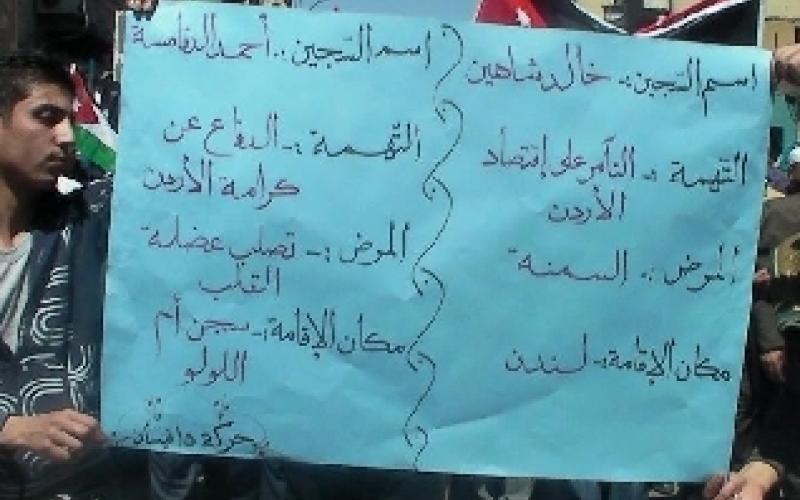 اسم السجين :. خالد شاهين
التهمة :. التآمر على إقتصاد
الأردن
المرض :. السمنة
مكان الإقامة :. لندن
اسم السجين :. أحمد الدقامسة
التهمة :. الدفاع عن
كرامة الأردن
المرض :. تصلب عضلة
القلب
مكان الإقامة :. سجن أم
اللولو
حركة